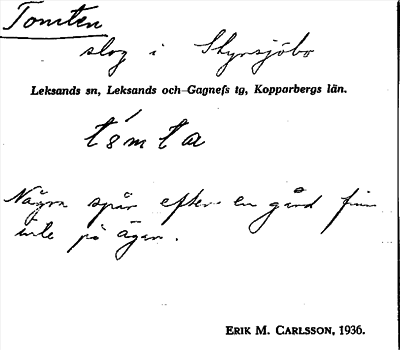 Tomten
slog i Styrsjöbo
Leksands sn, Leksands och Gagnefs tg, Kopparbergs län.
tömta
Några spår efter en gård finns
inte på ägan.
ERIK M. CARLSSON, 1936.